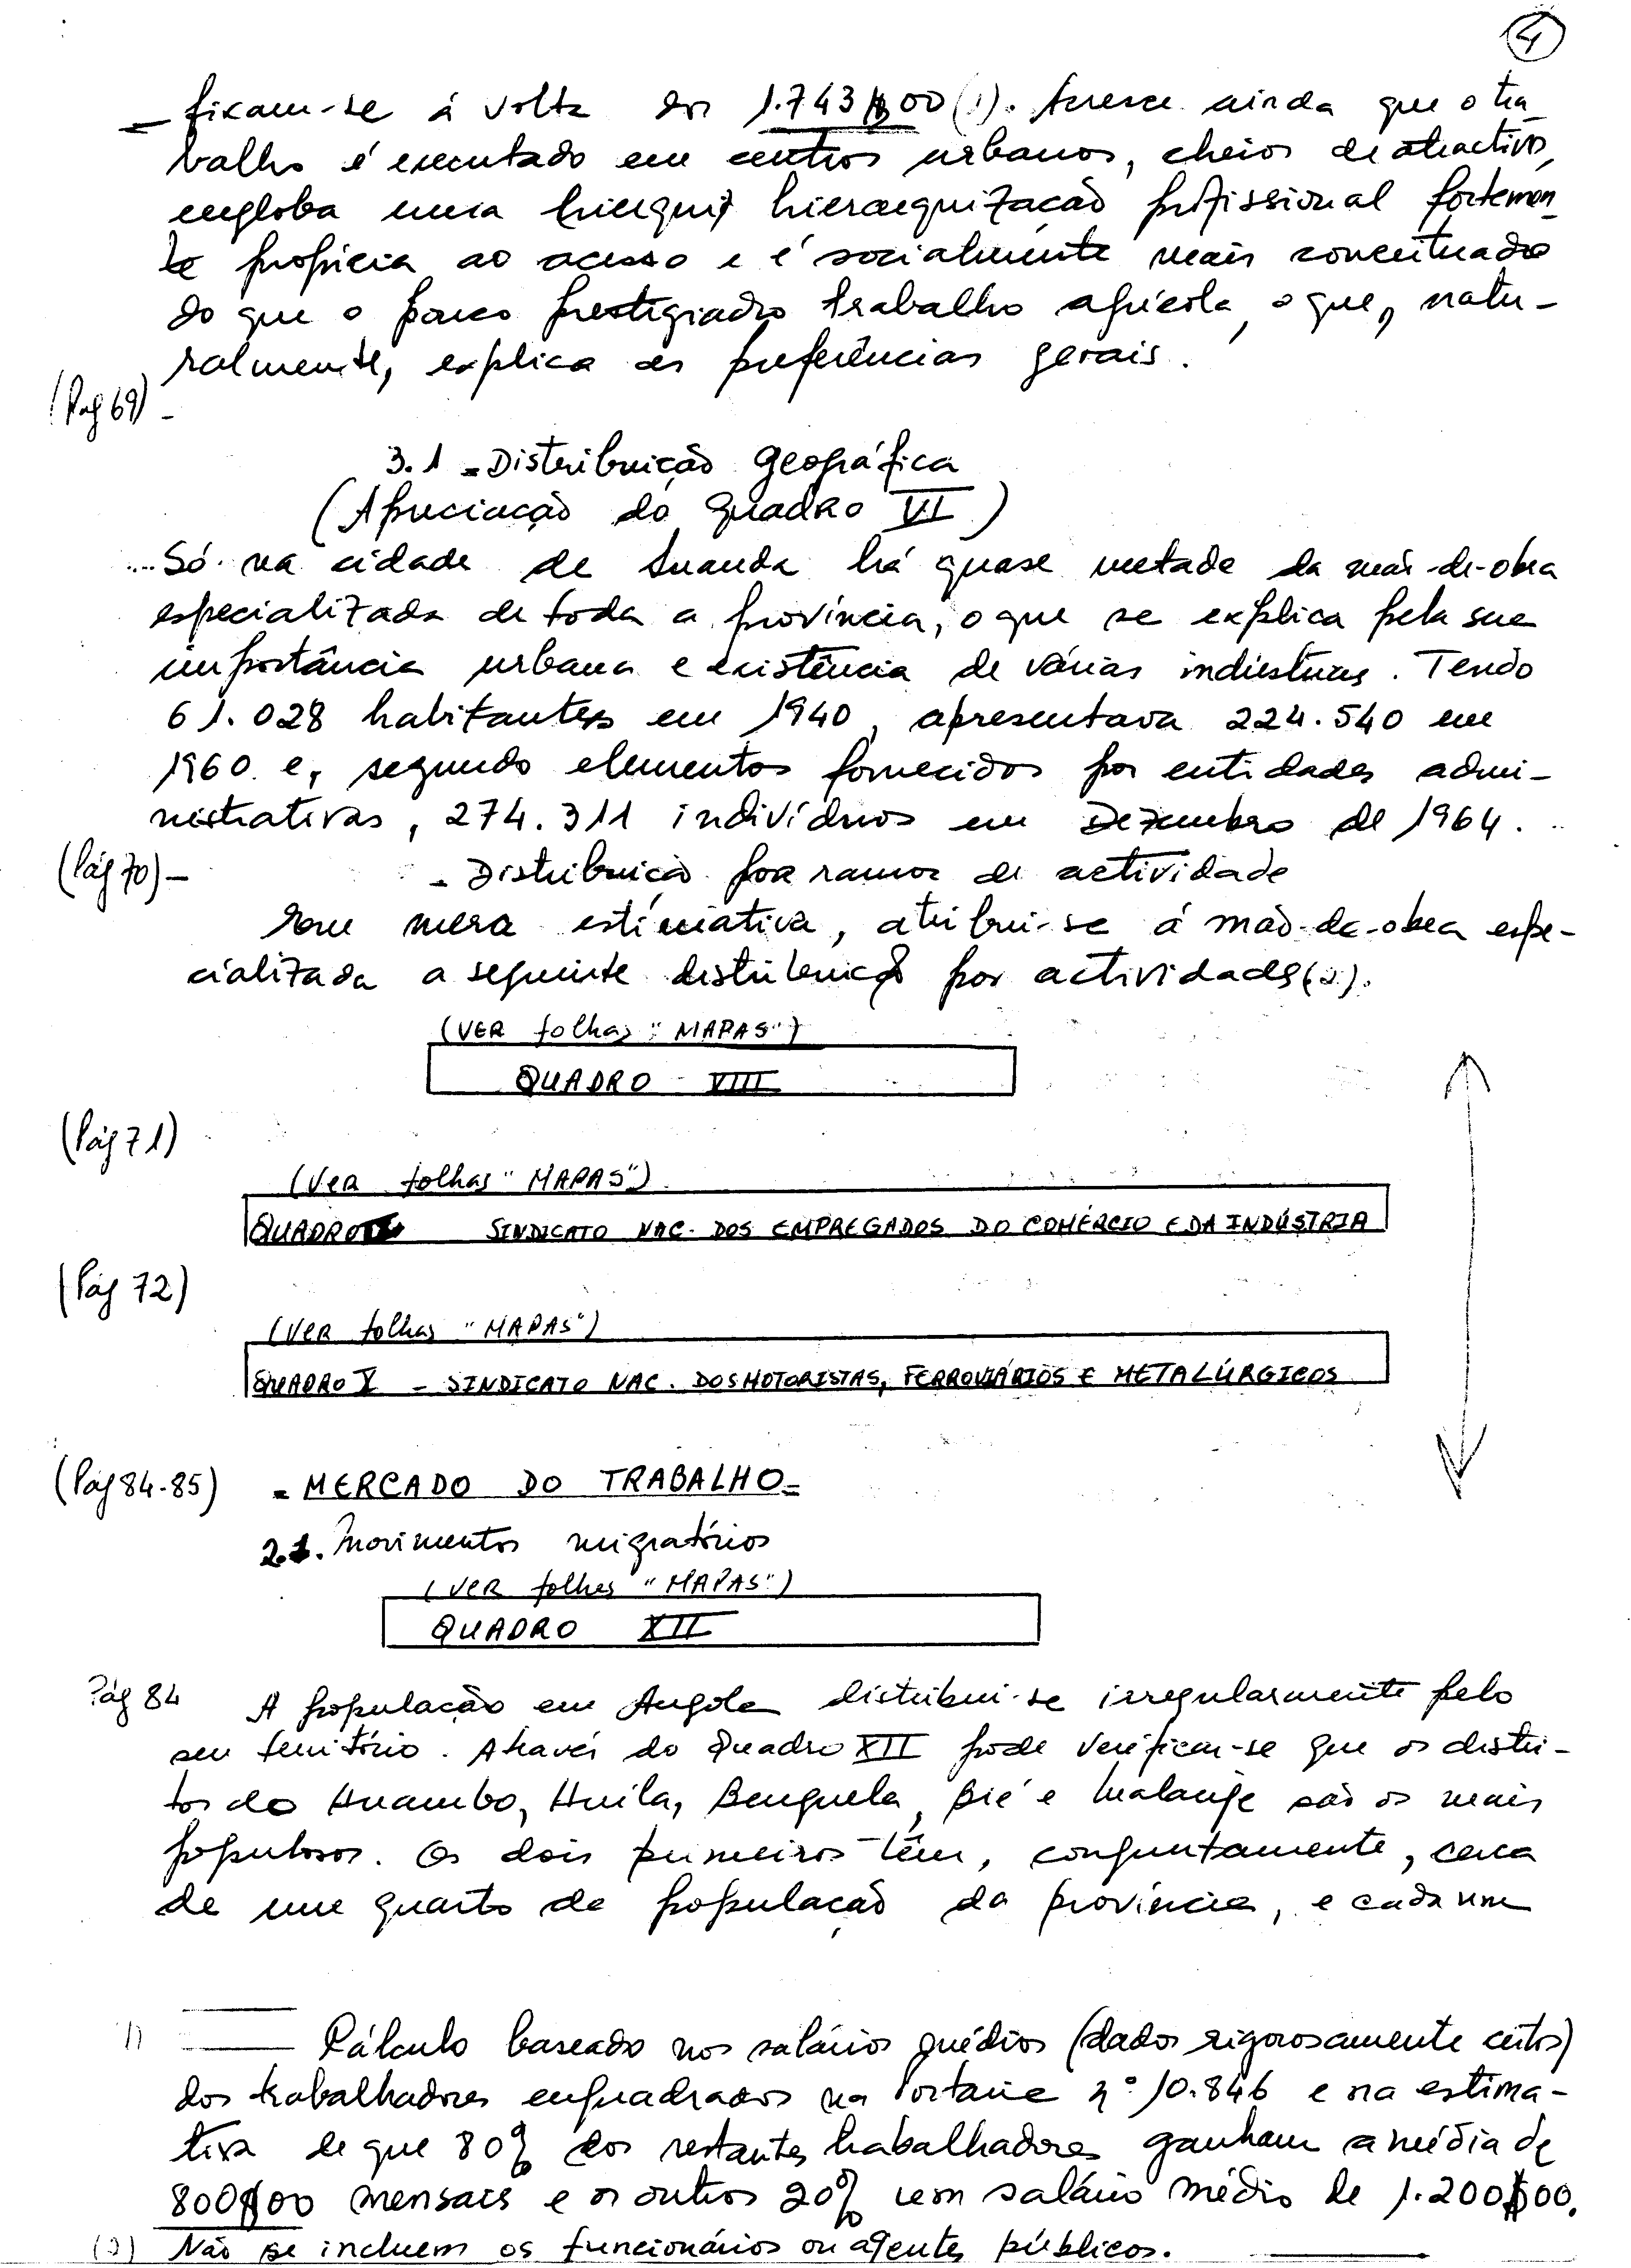 4
- fixam-se á volta dos 1.743$00 (1). Acresce ainda que o tra
balho é executado em centros urbanos, cheios de atractivos,
engloba uma hierarquização profissional fortemen
te propícia ao acesso e é socialmente mais conceituado
do que o pouco prestigiado trabalho agrícola, o que, natu-
ralmente, explica as preferências gerais.
(Pág 69) -
3.1 - Distribuição Geográfica
(Apreciação do Quadro VI)
....Só na cidade de Luanda há quase metade da mão-de-obra
especializada de toda a província, o que se explica pela sua
importância urbana e existência de várias indústrias. Tendo
61.028 habitantes em 1940, apresentava 224.540 em
1960 e, segundo elementos fornecidos por entidades admi-
nistrativas, 274.311 indivíduos em Dezembro de 1964. ..
(Pág 70) - - Distribuição por ramos de actividade
Com mera estimativa, atribui-se á mão-de-obra espe-
cializada a seguinte distribuição por actividades (2).
(VER folhas "MAPAS")
QUADRO - VIII
(Pág 71)
(Ver folhas "MAPAS")
QUADRO SINDICATO NAC. DOS EMPREGADOS DO COMÉRCIO E DA INDÚSTRIA
(Pág 72)
(Ver folhas "MAPAS")
QUADRO X - SINDICATO NAC. DOS MOTORISTAS, FERROVIÁRIOS E METALÚRGICOS
(Pág 84-85) - MERCADO DO TRABALHO -
2.1. Movimentos migratórios
(VER folhas "MAPAS")
QUADRO XII
Pág 84 A população em Angola distribui-se irregularmente pelo
seu território. Através do Quadro XII pode verificar-se que os distri-
tos do Huambo, Huíla, Benguela, Bié e Malange são os mais
populosos. Os dois primeiros têm, conjuntamente, cerca
de um quarto da população da província, e cada um
1) Cálculo baseado nos salários médios (dados rigorosamente certos)
dos trabalhadores enquadrados na Portaria nº 10.846 e na estima-
tiva de que 80% dos restantes trabalhadores ganham a média de
800$00 mensais e os outros 20% com salário médio de 1.200$00.
(2) Não se incluem os funcionários ou agentes públicos.